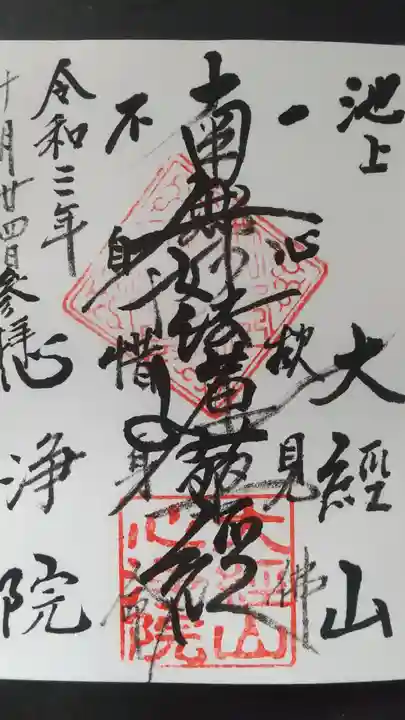 池上
大經山
一心欲見佛
南無妙法蓮華經
不自惜身命
令和三年
十月廿四日參拝
心浄院
大經山心浄院